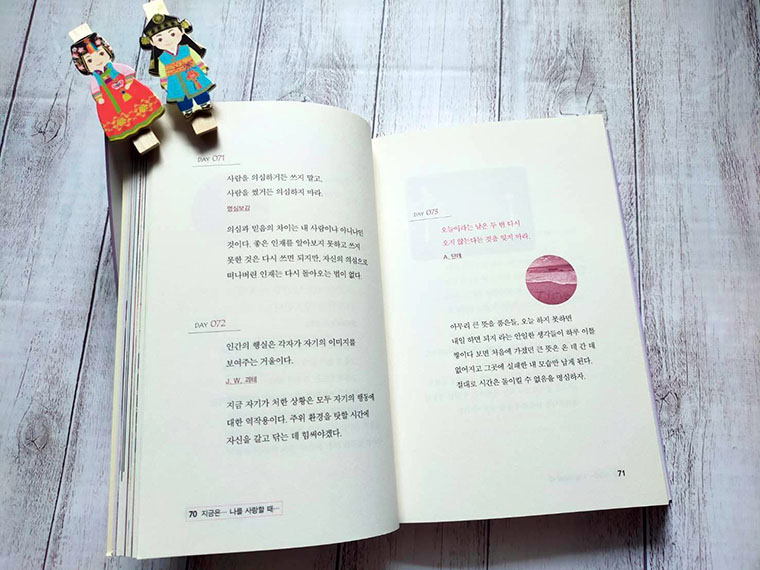 DAY 071
사람을 의심하거든 쓰지 말고,
사람을 썼거든 의심하지 마라.
명심보감
의심과 믿음의 차이는 내 사람이냐 아니냐인
것이다. 좋은 인재를 알아보지 못하고 쓰지
못한 것은 다시 쓰면 되지만, 자신의 의심으로
떠나버린 인재는 다시 돌아오는 법이 없다.
DAY 072
인간의 행실은 각자가 자기의 이미지를
보여주는 거울이다.
J. W. 괴테
지금 자기가 처한 상황은 모두 자기의 행동에
대한 역작용이다. 주위 환경을 탓할 시간에
자신을 갈고 닦는 데 힘써야겠다.
70 지금은… 나를 사랑할 때…
DAY 073
오늘이라는 날은 두 번 다시
오지 않는다는 것을 잊지 마라.
A. 단테
아무리 큰 뜻을 품은들, 오늘 하지 못하면
내일 하면 되지 라는 안일한 생각들이 하루 이틀
쌓이다 보면 처음에 가졌던 큰 뜻은 온 데 간 데
없어지고 그곳에 실패한 내 모습만 남게 된다.
절대로 시간은 돌이킬 수 없음을 명심하자.
71